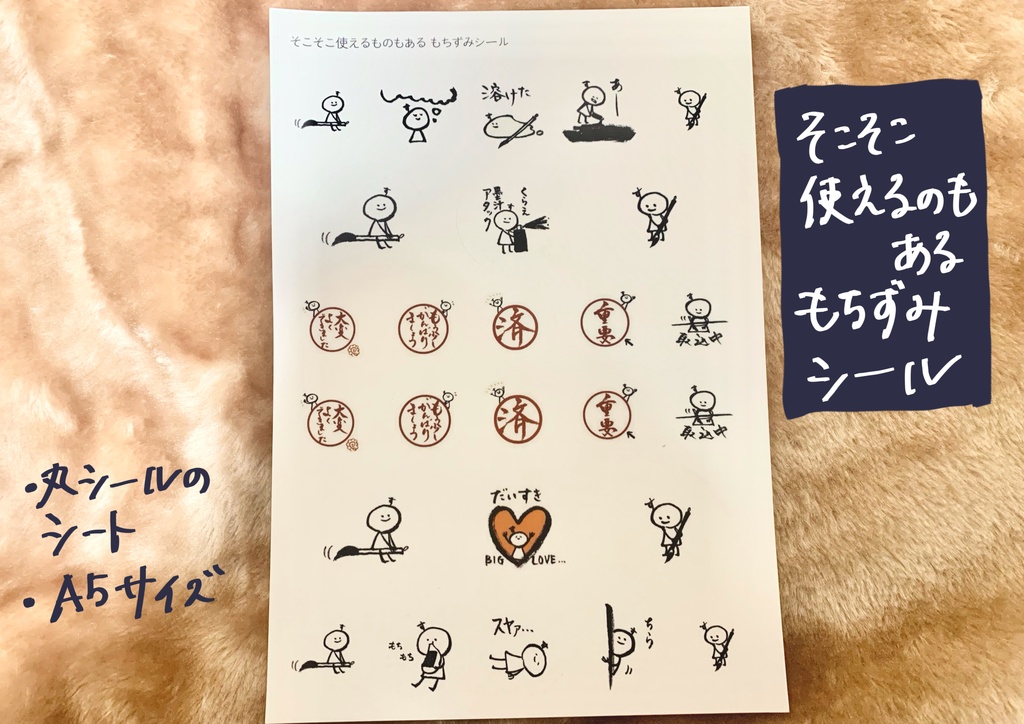 そこそこ使えるものもある もちずみシール
溶けた
あー
くらえ
墨汁
アタック
大変
よく
できました
もう少し
がんばり
ましょう
済
重要
取込中
大変
よく
できました
もう少し
がんばり
ましょう
済
重要
取込中
だいすき
BIG LOVE...
もち
もち
スヤァ...
ちら
そこそこ
使えるのも
ある
もちずみ
シール
・丸シールの
シート
・A5サイズ